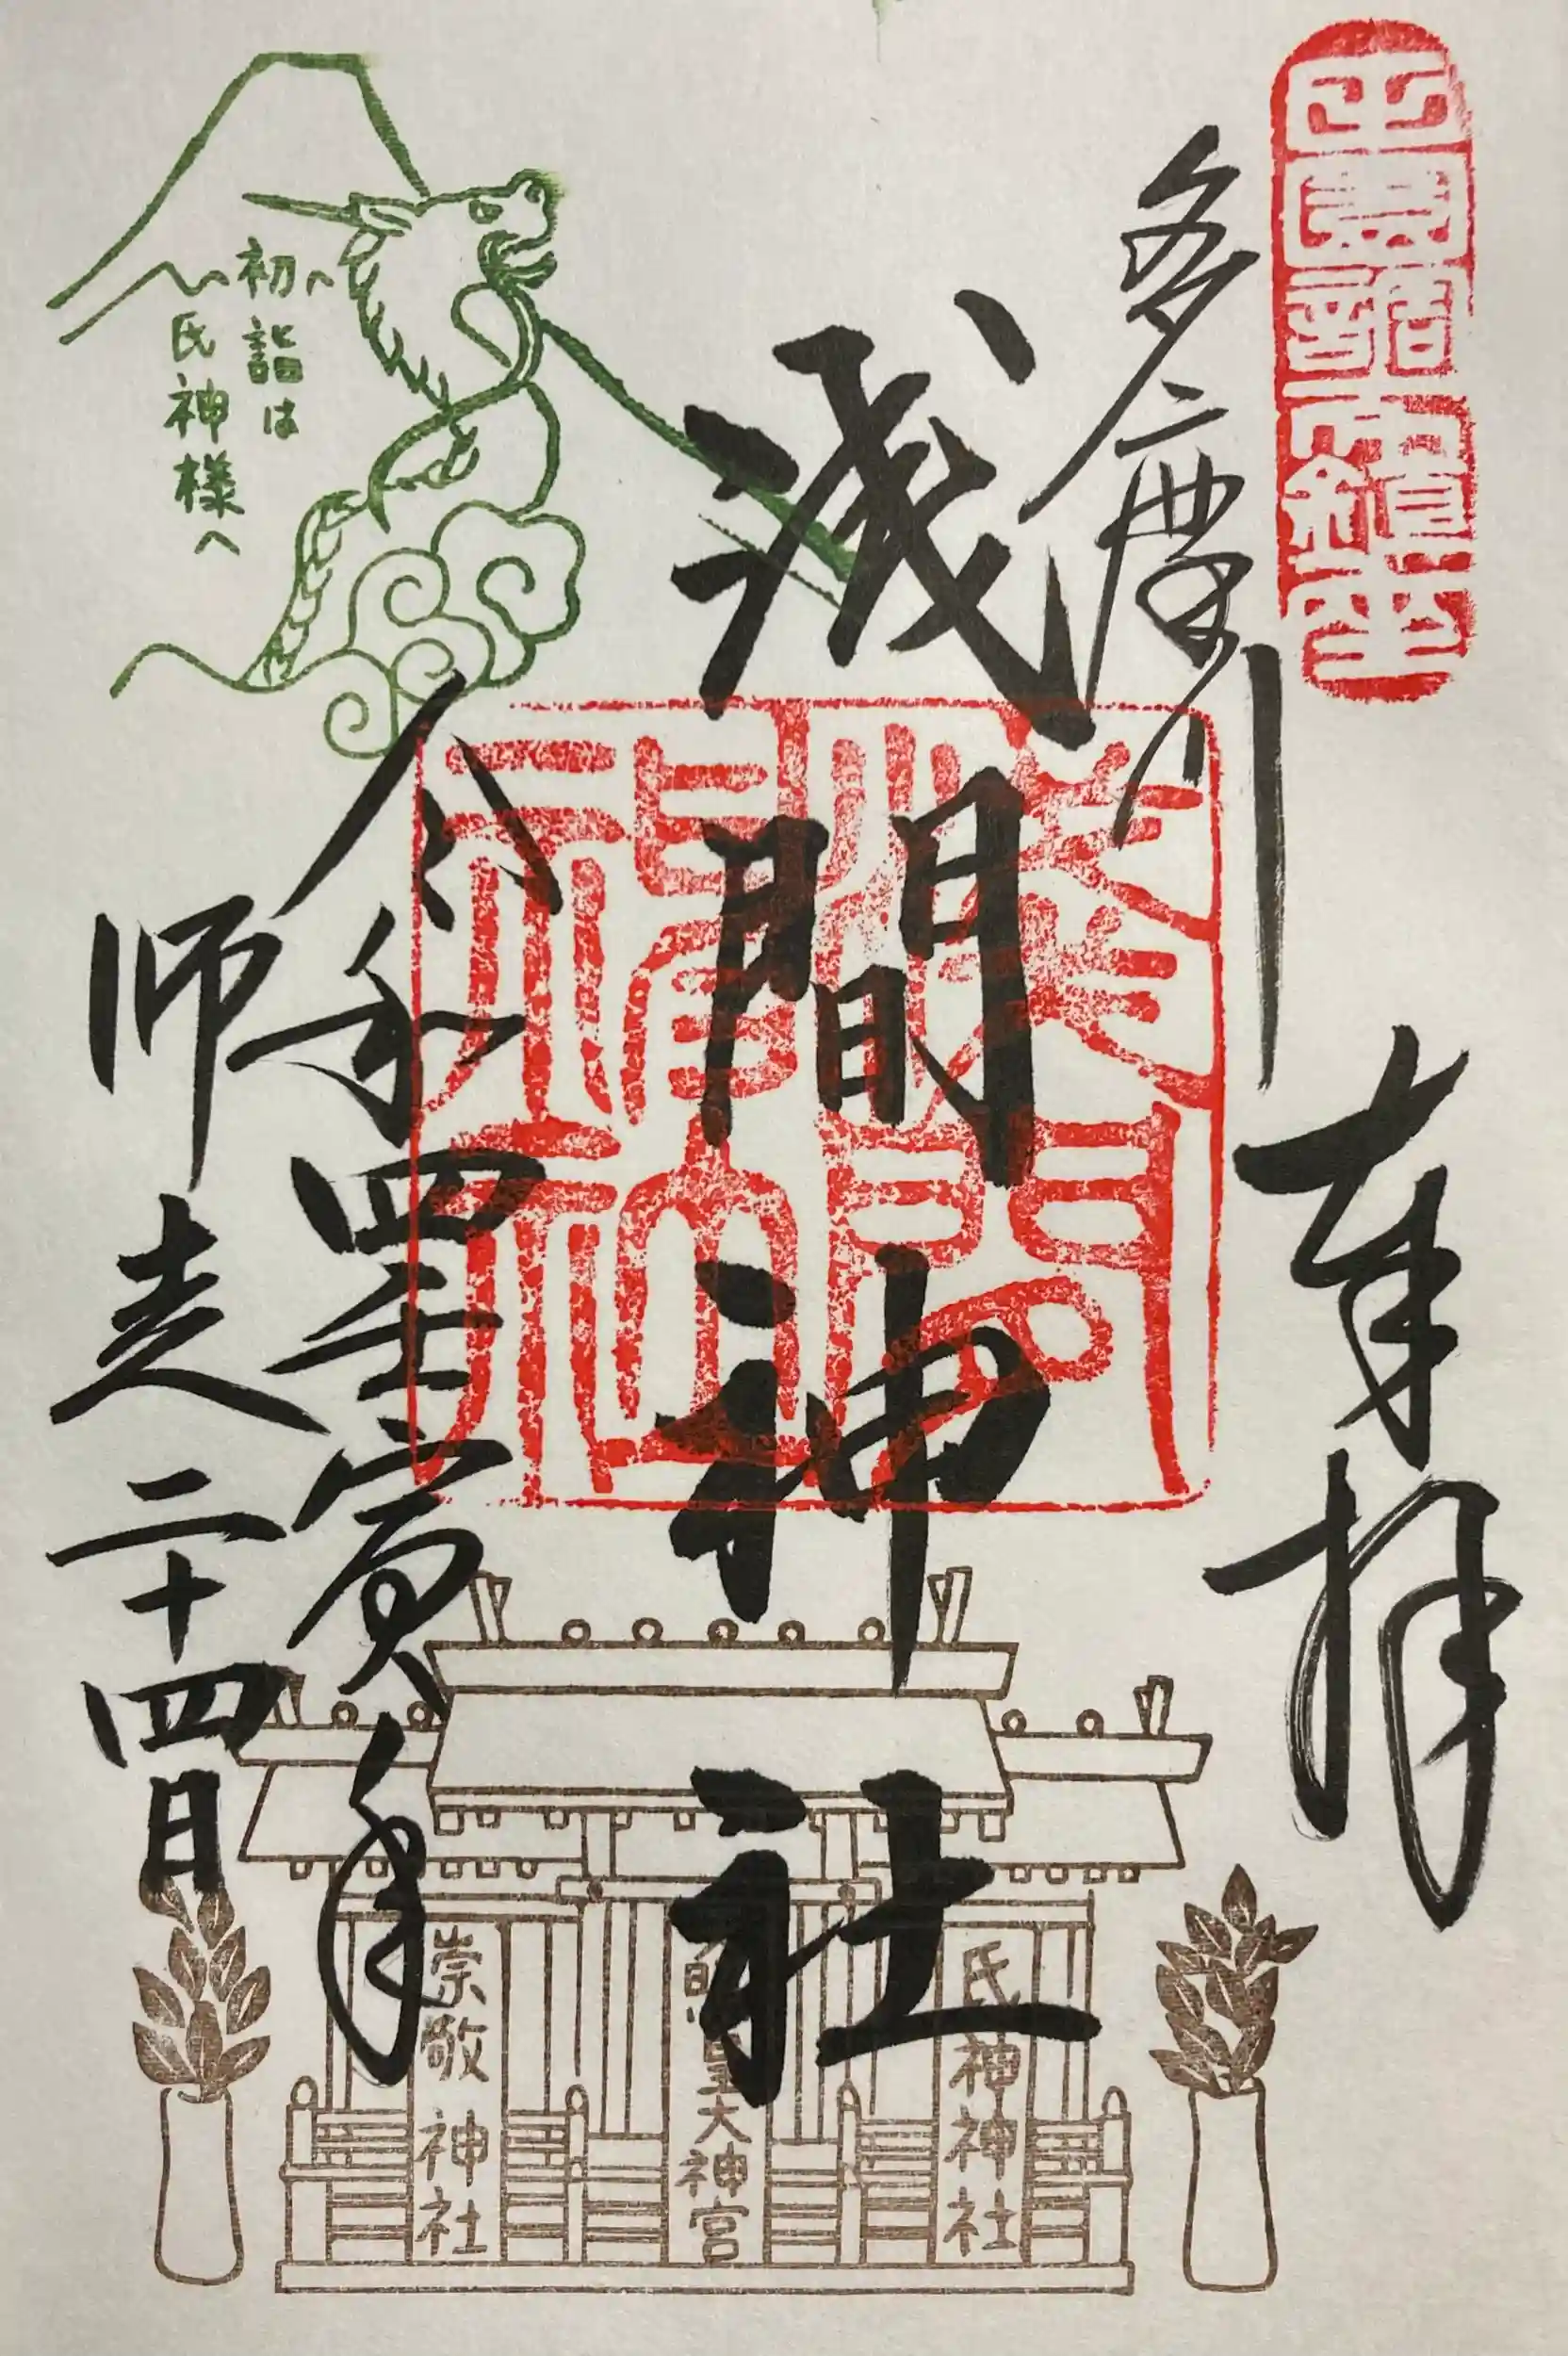 田園調布鎮坐
奉拝
多摩川
浅間神社
令和四壬寅年
師走二十四日
初詣は
氏神様へ
氏神神社
皇大神宮
崇敬神社